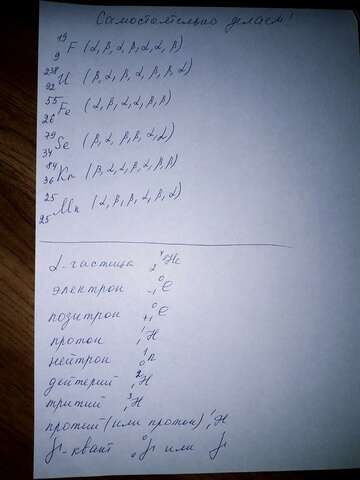 Самостоятельно делаем!
¹⁹₉F (α, β, α, β, α, α, β)
²³⁸₉₂U (β, α, β, α, β, β, α)
⁵⁵₂₆Fe (α, β, α, α, β, β)
⁷⁹₃₄Se (β, α, β, β, α, α)
⁸⁴₃₆Kr (β, α, α, β, α, β, β)
²⁵₂₅Mn (α, β, β, α, β, α)
α-частица ⁴₂He
электрон ⁰₋₁e
позитрон ⁰₊₁e
протон ¹₁H
нейтрон ¹₀n
дейтерий ²₁H
тритий ³₁H
протий (или протон) ¹₁H
γ-квант ⁰₀γ или γ